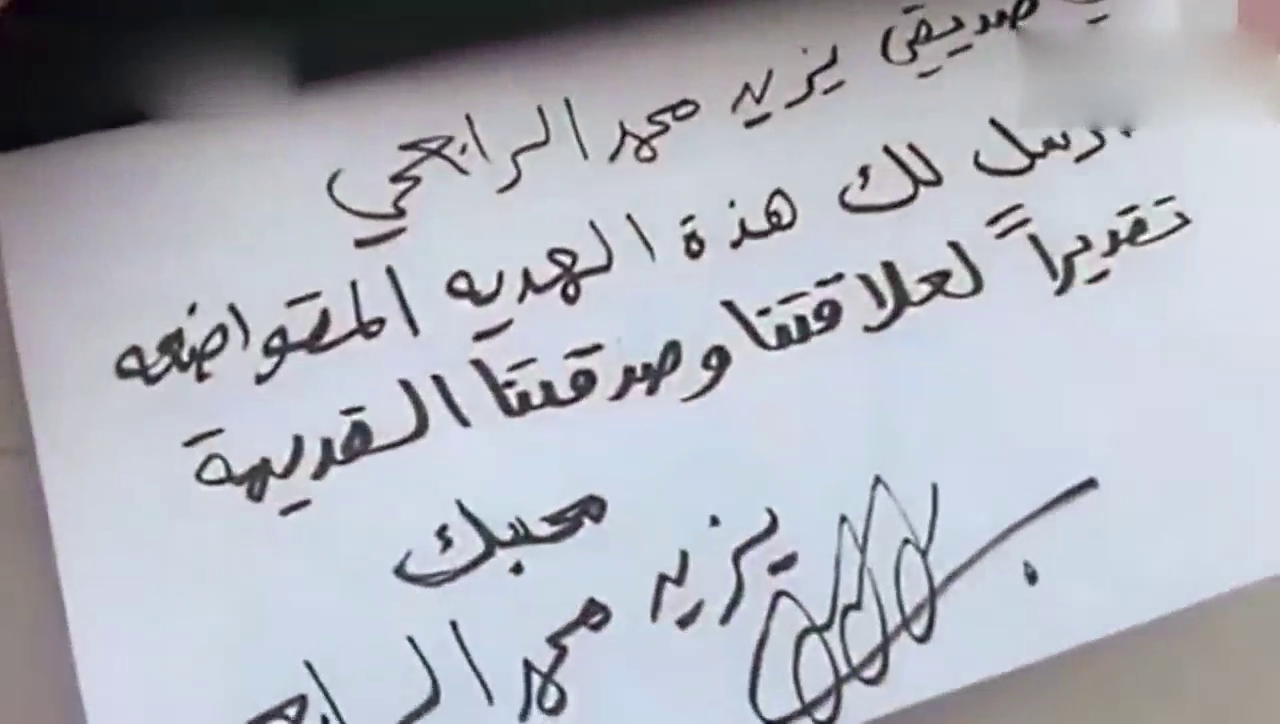 صديقي يزيد محمد الراجحي
ارسل لك هذة الهديه المتواضعه
تقديراً لعلاقتنا وصدقتنا القديمة
محبك
يزيد محمد